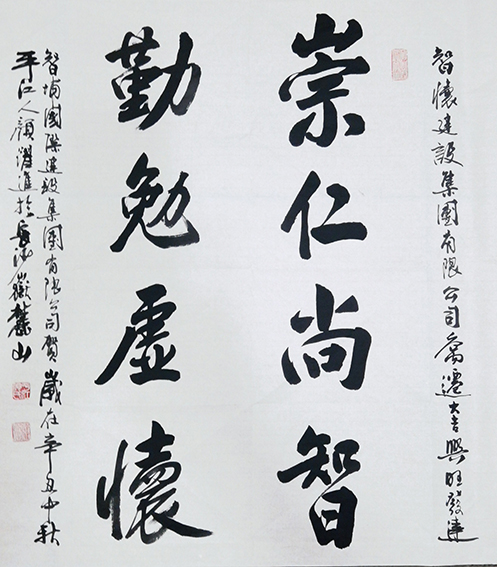 智懷建設集團有限公司喬遷大吉興旺發達
崇仁尚智
勤勉虛懷
智埔國際建設集團有限公司賀歲在辛丑中秋
平江人顏澤進於長沙嶽麓山